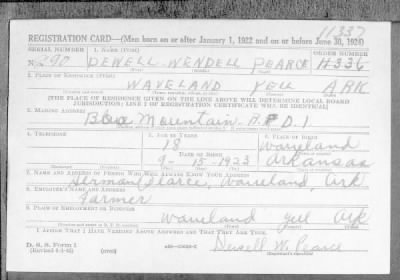 11337
REGISTRATION CARD—(Men born on or after January 1, 1922 and on or before June 30, 1924)
SERIAL NUMBER 1. NAME (Print) ORDER NUMBER
N290 DEWELL WENDELL PEARCE 11336
(First) (Middle) (Last)
2. PLACE OF RESIDENCE (Print)
WAVELAND YELL ARK
[THE PLACE OF RESIDENCE GIVEN ON THE LINE ABOVE WILL DETERMINE LOCAL BOARD
JURISDICTION; LINE 2 OF REGISTRATION CERTIFICATE WILL BE IDENTICAL]
3. MAILING ADDRESS
Blue Mountain - R F D. 1
4. TELEPHONE 5. AGE IN YEARS 6. PLACE OF BIRTH
18 Waveland
DATE OF BIRTH
9- 15- 1923 Arkansas
7. NAME AND ADDRESS OF PERSON WHO WILL ALWAYS KNOW YOUR ADDRESS
Herman Pearce, Waveland, Ark
8. EMPLOYER'S NAME AND ADDRESS
Farmer
9. PLACE OF EMPLOYMENT OR BUSINESS
Waveland Yell Ark
I AFFIRM THAT I HAVE VERIFIED ABOVE ANSWERS AND THAT THEY ARE TRUE.
D. S. S. Form 1
Dewell W. Pearce
(Registrant's signature)